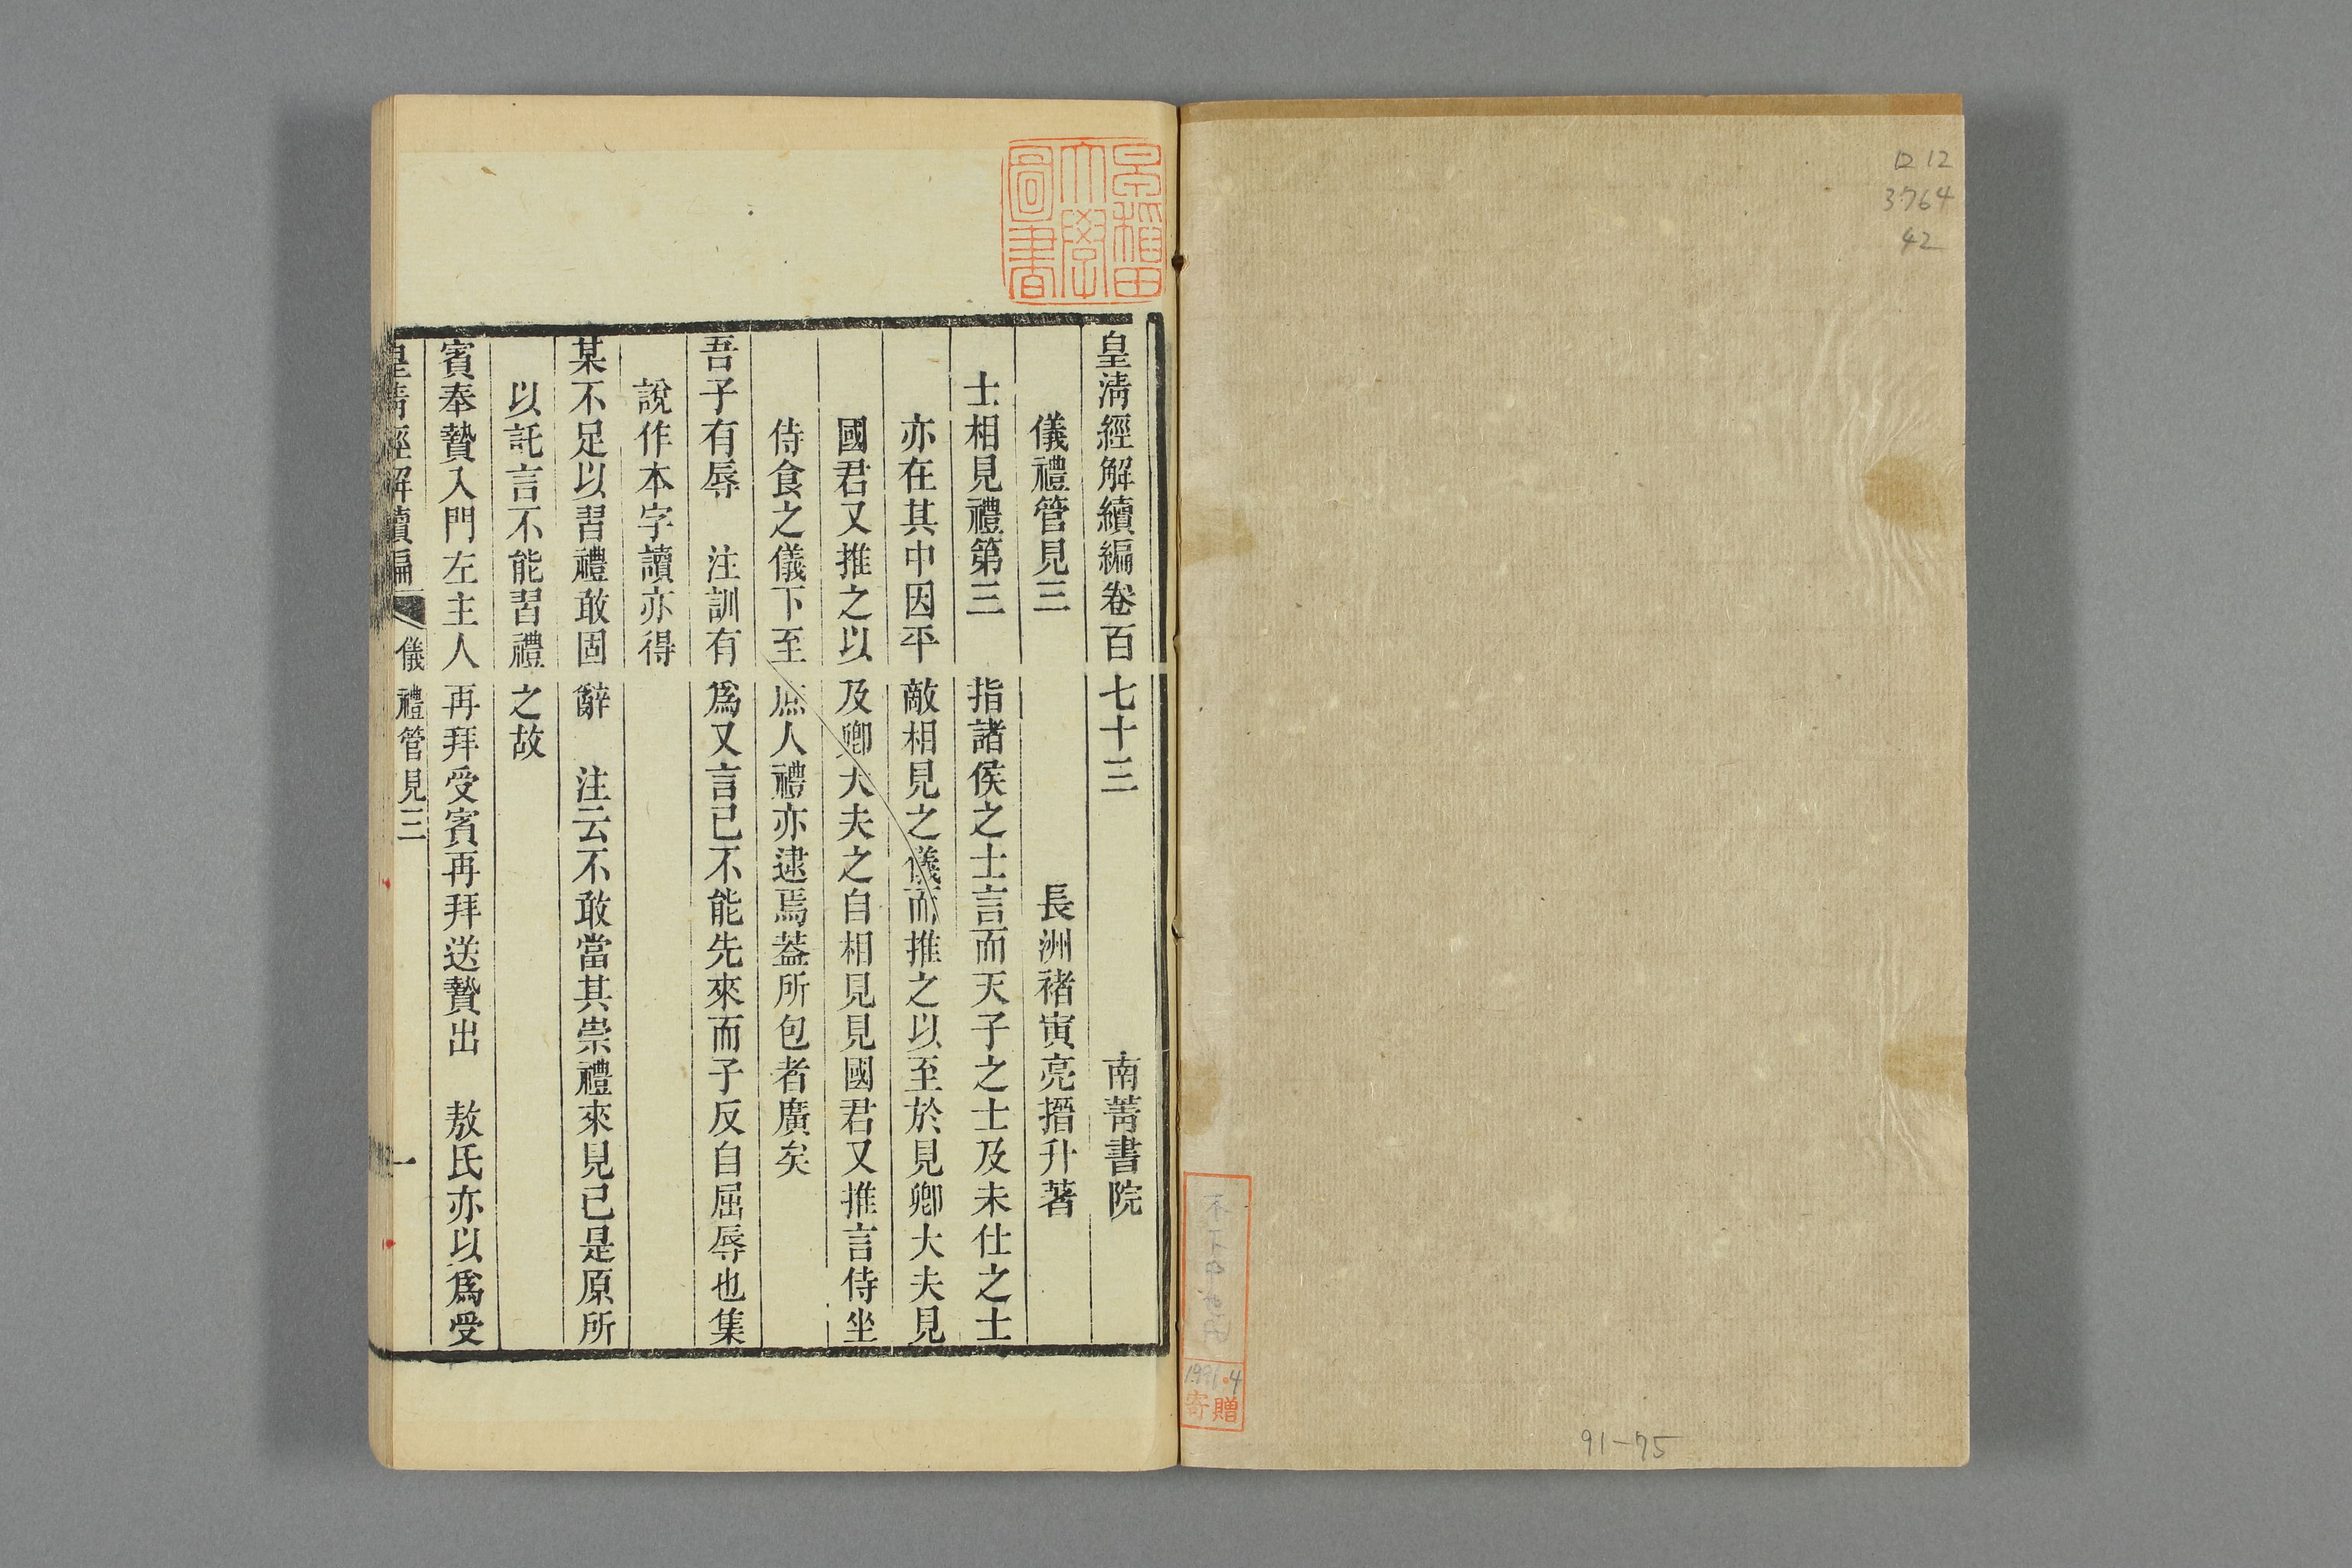 12 12
3764
42
寄贈
91-75
早稲田
大學
圖書
皇淸經解續編卷百七十三　南菁書院
儀禮管見三　長洲褚寅亮搢升著
士相見禮第三　指諸侯之士言而天子之士及未仕之士
亦在其中因平敵相見之儀而推之以至於見卿大夫見
國君又推之以及卿大夫之自相見見國君又推言侍坐
侍食之儀下至庶人禮亦逮焉葢所包者廣矣
吾子有辱　注訓有爲又言已不能先來而子反自屈辱也集
說作本字讀亦得
某不足以習禮敢固辭　注云不敢當其崇禮來見已是原所
以託言不能習禮之故
賓奉贄入門左主人再拜受賓再拜送贄出　敖氏亦以爲受
皇淸經解續編　儀禮管見三　一